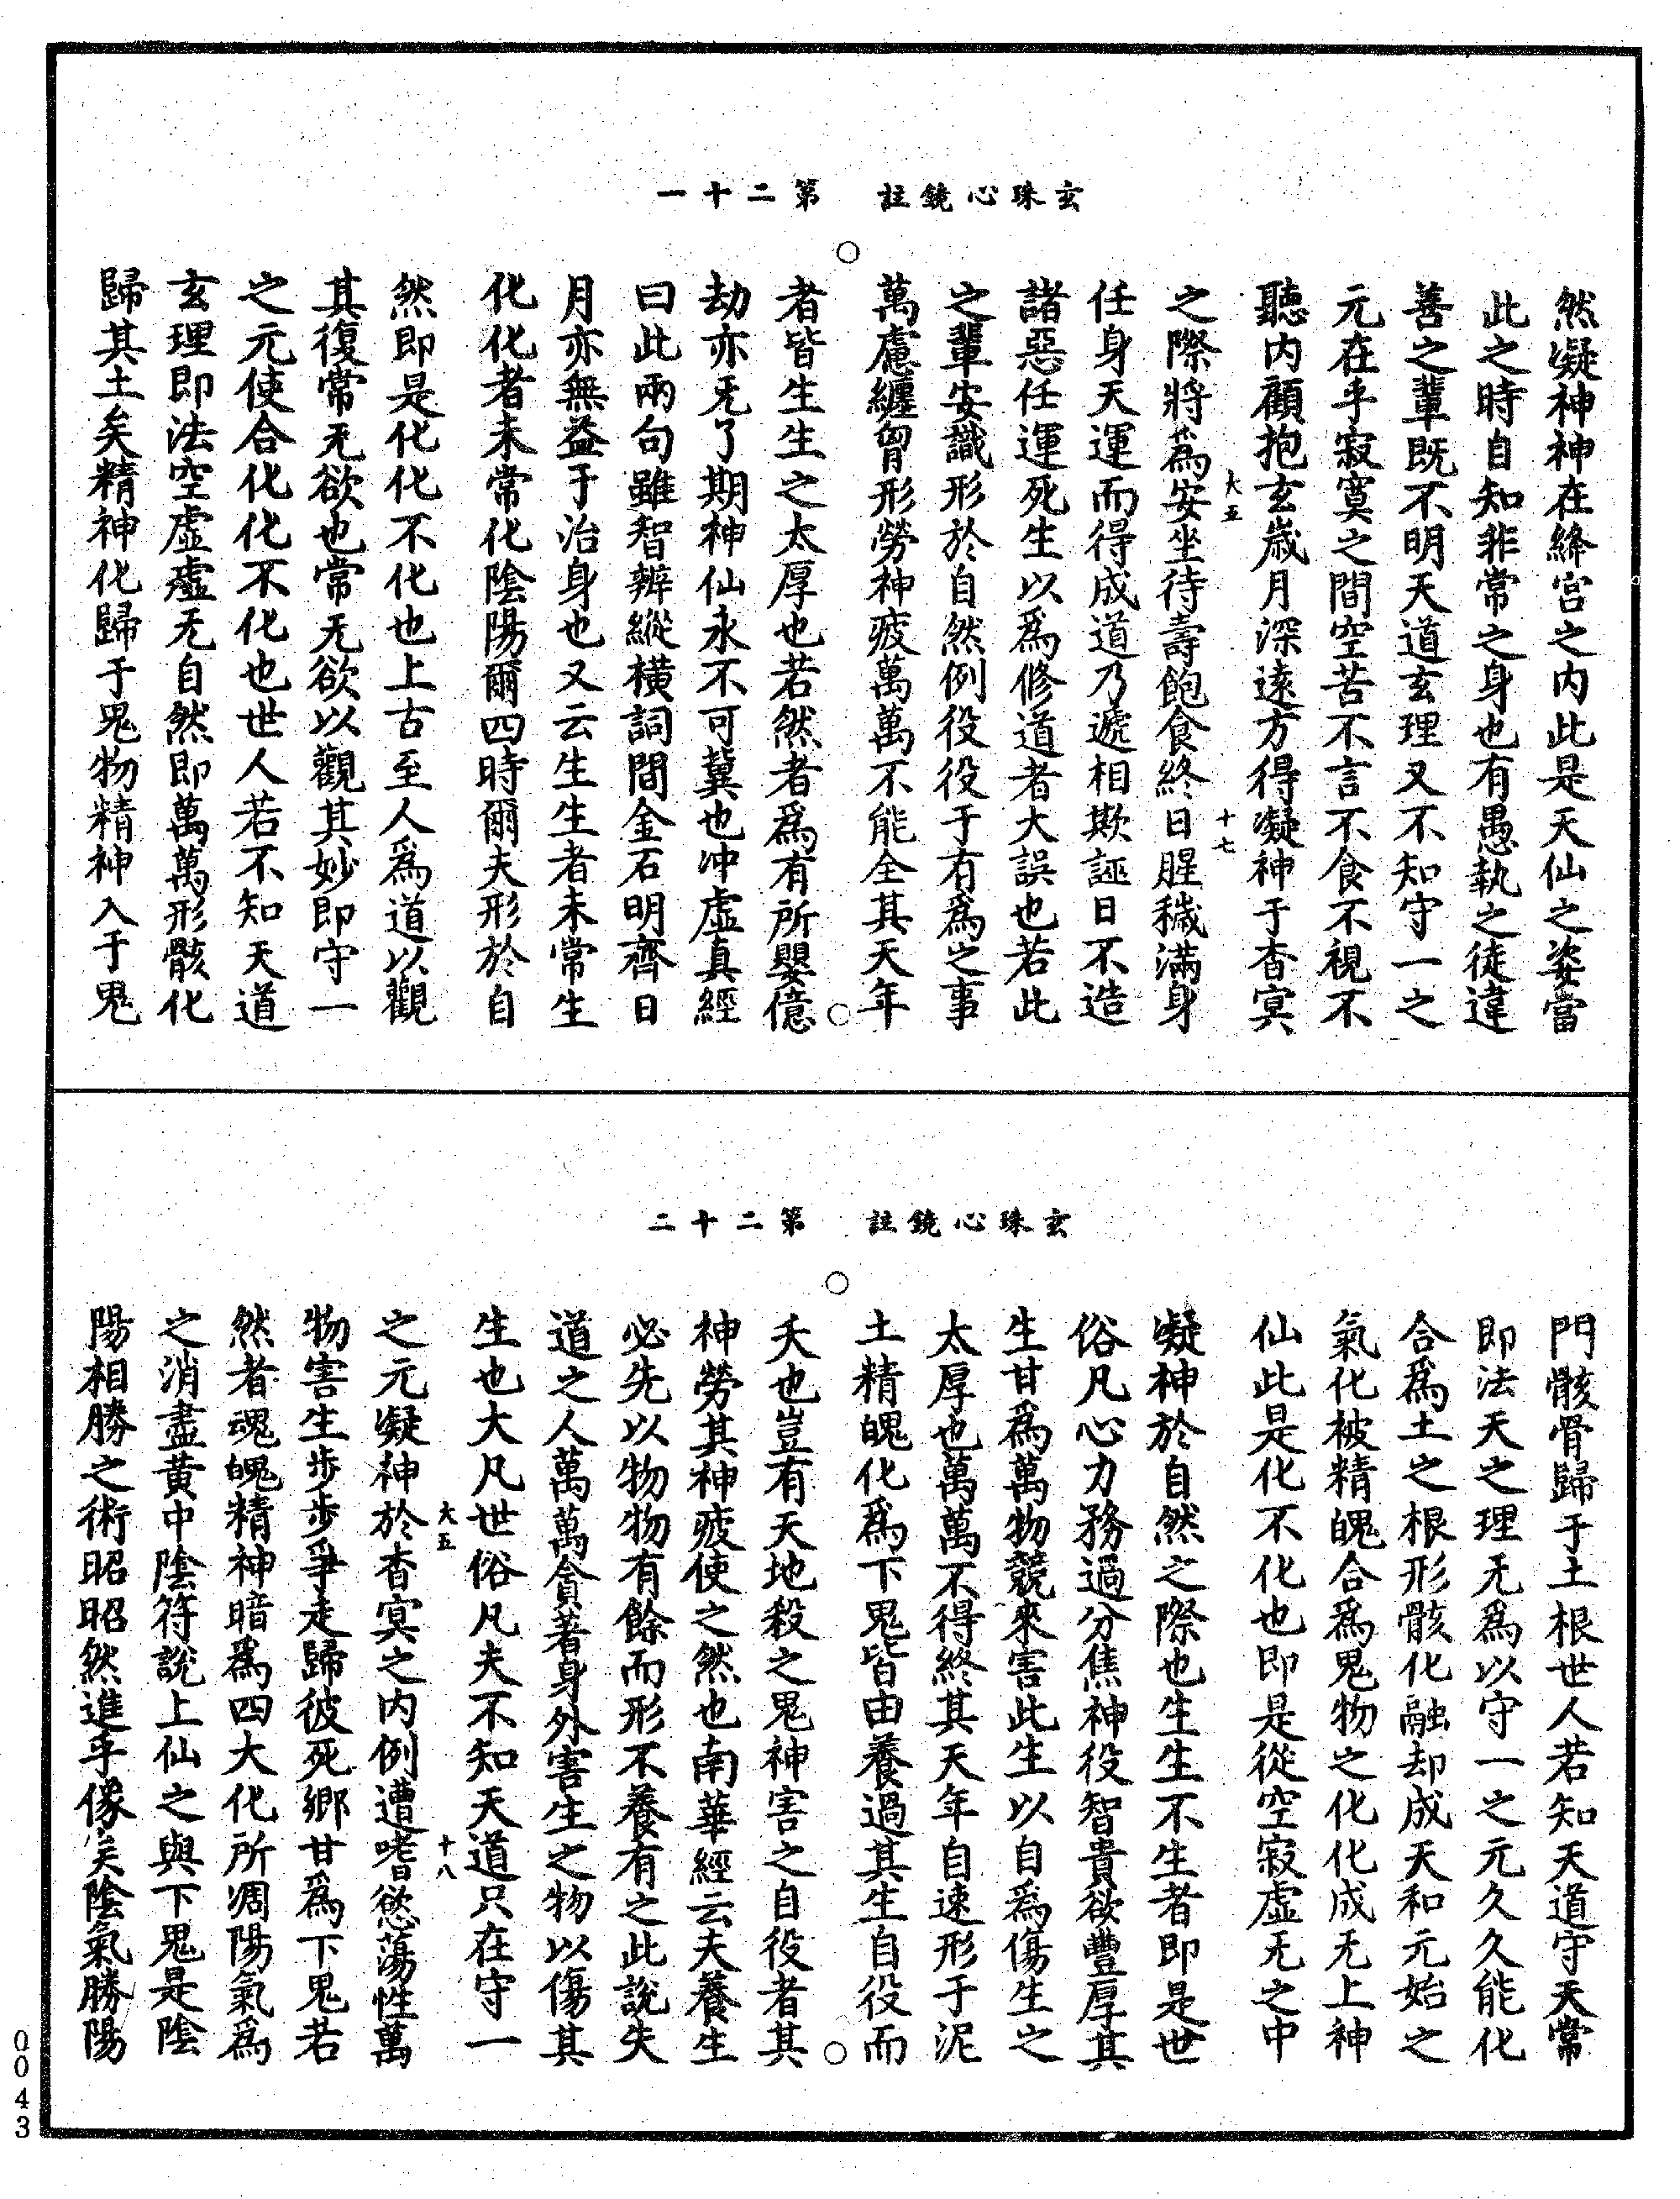 玄珠心鏡註　第二十一
然凝神神在絳宮之内此是天仙之姿當
此之時自知非常之身也有愚執之徒違
善之輩既不明天道玄理又不知守一之
元在乎寂寞之間空苦不言不食不視不
聽内顧抱玄歲月深遠方得凝神于杳冥
大五　十七
之際將爲安坐待壽飽食終日腥穢滿身
任身天運而得成道乃遞相欺誣日不造
諸惡任運死生以爲修道者大誤也若此
之輩安識形於自然例役役于有爲之事
萬慮纏胷形勞神疲萬萬不能全其天年
者皆生生之太厚也若然者爲有所嬰億
劫亦无了期神仙永不可冀也冲虛真經
曰此兩句雖智辨縱橫詞間金石明齊日
月亦無益于治身也又云生生者未常生
化化者未常化陰陽爾四時爾夫形於自
然即是化化不化也上古至人爲道以觀
其復常无欲也常无欲以觀其妙即守一
之元使合化化不化也世人若不知天道
玄理即法空虛虛无自然即萬萬形骸化
歸其土矣精神化歸于鬼物精神入于鬼
玄珠心鏡註　第二十二
門骸骨歸于土根世人若知天道守天常
即法天之理无爲以守一之元久久能化
合爲土之根形骸化融却成天和元始之
氣化被精魄合爲鬼物之化化成无上神
仙此是化不化也即是從空寂虛无之中
凝神於自然之際也生生不生者即是世
俗凡心力務過分焦神役智貴欲豐厚其
生甘爲萬物競來害此生以自爲傷生之
太厚也萬萬不得終其天年自速形于泥
土精魄化爲下鬼皆由養過其生自役而
夭也豈有天地殺之鬼神害之自役者其
神勞其神疲使之然也南華經云夫養生
必先以物物有餘而形不養有之此說失
道之人萬萬貪著身外害生之物以傷其
生也大凡世俗凡夫不知天道只在守一
大五　十八
之元凝神於杳冥之内例遭嗜慾蕩性萬
物害生步步爭走歸彼死鄉甘爲下鬼若
然者魂魄精神暗爲四大化所凋陽氣爲
之消盡黃中陰符說上仙之與下鬼是陰
陽相勝之術昭昭然進乎像矣陰氣勝陽
0043